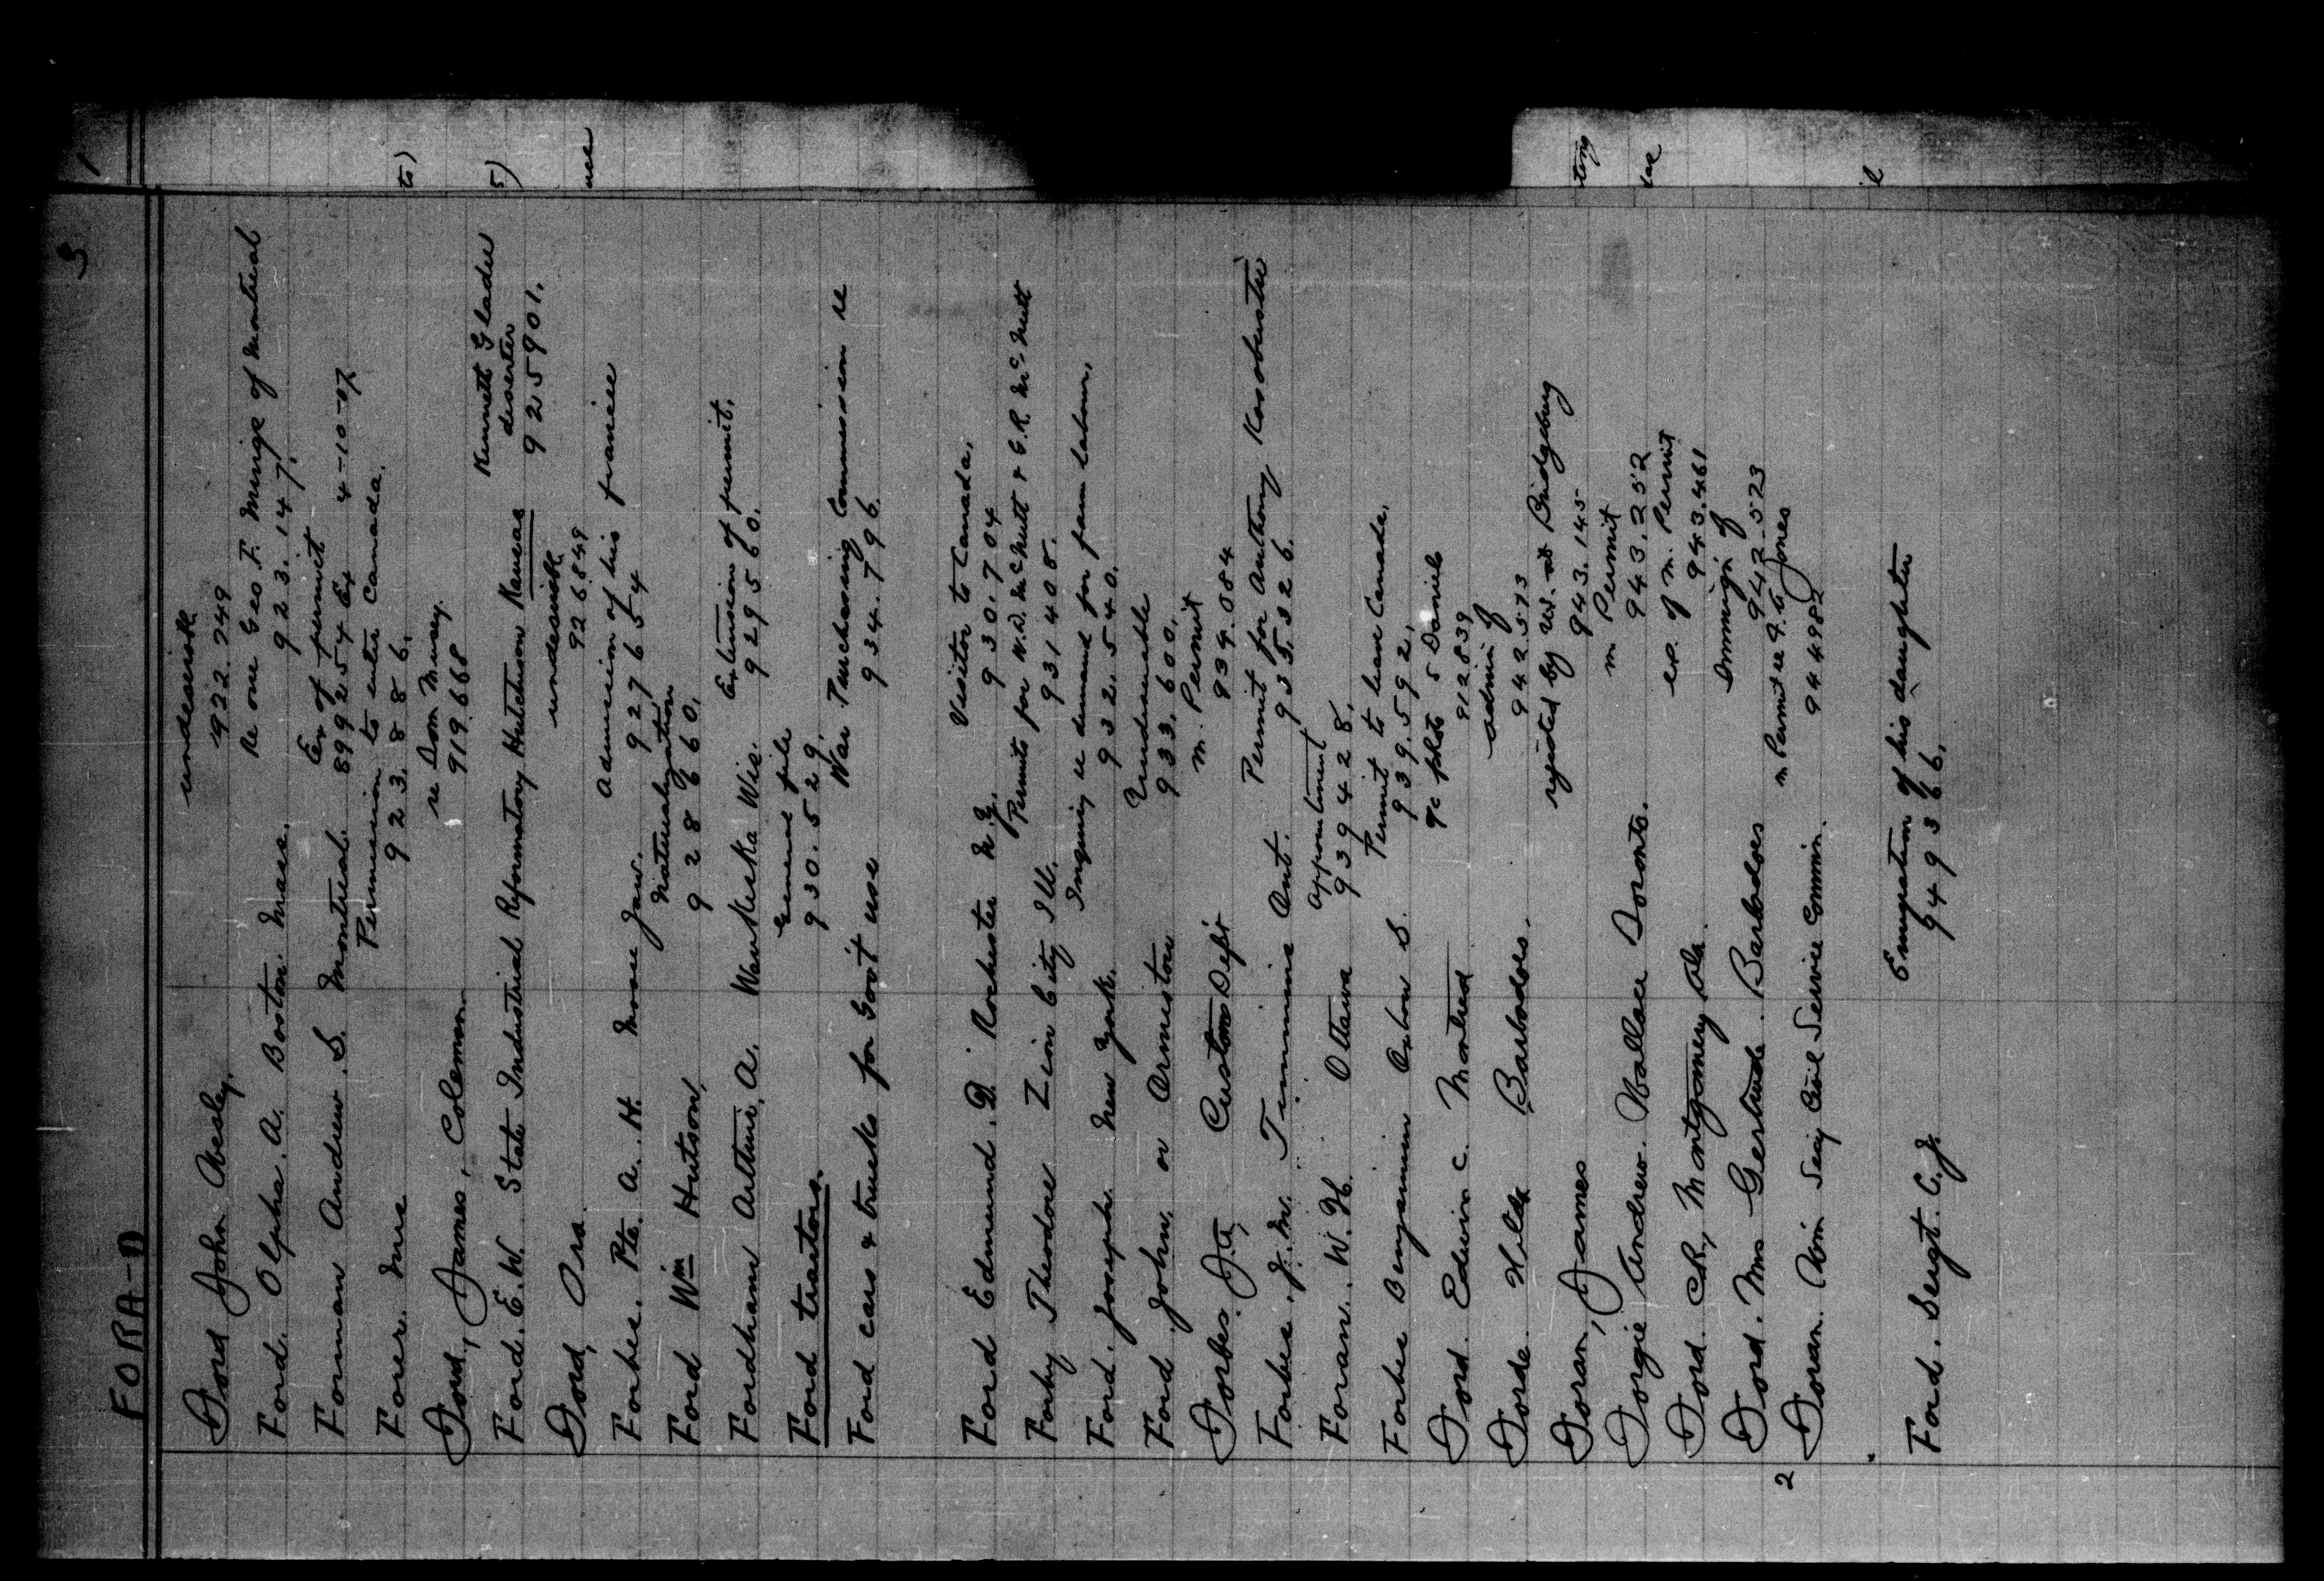 3
FORA-D
Ford John Wesley. undesirable
922.749
Ford. Olpha. A. Boston. Mass. re one Geo F. Minge of Montreal
923.147.
Ex of permit
Forman Andrew. S. Montreal. 899254 Ex 4-10-07
Permission to enter Canada.
Forere. Mrs 923.886.
re Dom Mersey.
Ford, James, Coleman 919.668
Kenneth Glader
deserter
Ford. E. W. State Industrial Reformatory Hutchison Kansas 925901.
undesirable
Ford, Ora. 926849
Admission of his francie
Forbes. Pte. A. H. Moose Jaw. 927654
Naturalization
Ford Wm Hutson, 928660.
Extension of permit.
Fordham Arthur, A. Waukeska Wis. 929560.
General file
Ford tractors. 930.529.
War Purchasing Commission re
Ford cars & trucks for Gov't use 934.796.
Visitor to Canada.
Ford Edmund. D. Rochester N.Y. 930.704
Permits for W.D. McNutt & G.R. McNutt
Forby Theodore Zion City Ill. 931408.
Inquiry re demand for farm labour.
Ford. Joseph. New York. 932.540.
Undesirable
Ford. John. or Ormiston 933.600.
m. Permit
Forbes. Customs Dep't 934.084
Permit for Anthony
Forbes. J. M. Timmins Ont. 935.326.
Appointment
Foran. W. H. Ottawa 939428.
Permit to leave Canada.
Forbes Benjamin S. 939.592.
5 Daniels
Ford. Edwin C. Montreal 912839
admin of
Forde. Hilda Barbadoes. 942.573
rejected by U.S. at Bridgeburg
Foran, James 943.145
m Permit
Forgie Andrew. Wallace Toronto. 943.252
ex. of m. Permit
Ford. C.R., Montgomery Ala. 943.461
Immig'n of
Ford. Mrs Gertrude. Barbadoes 942.523
m Permit re Jones
2 Foran. Wm Secy Civil Service Commin. 944982
Emigration of his daughter
Ford. Sergt. C. J. 949366.